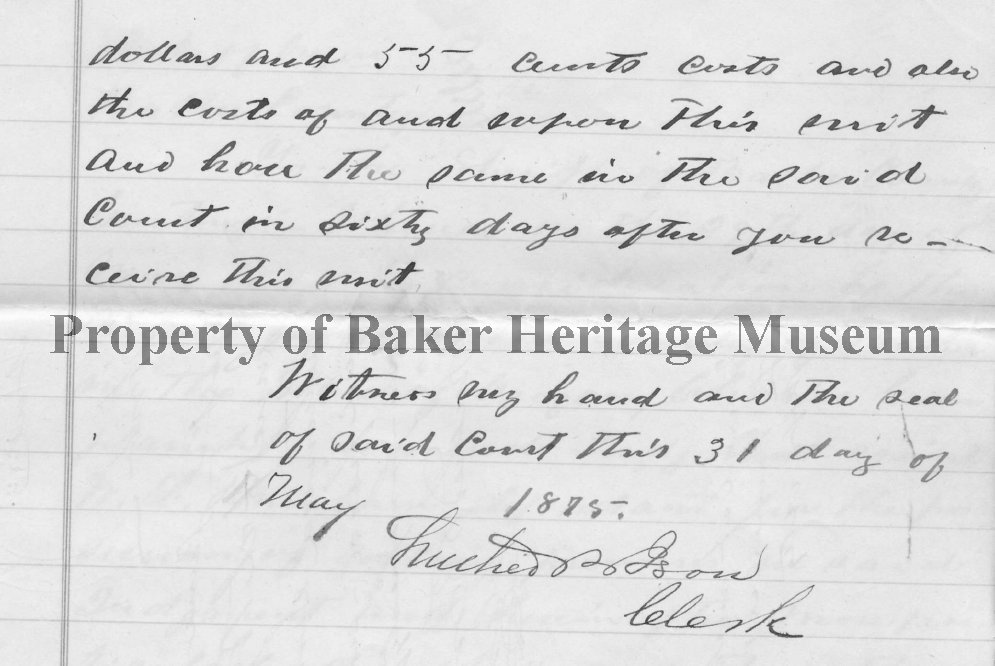 dollars and 55 cents costs and also
the costs of and upon this writ
and have the same in the said
Court in sixty days after you re-
ceive this writ
Property of Baker Heritage Museum
Witness my hand and the seal
of said Court this 31 day of
May 1875.
Luther B Ison
Clerk